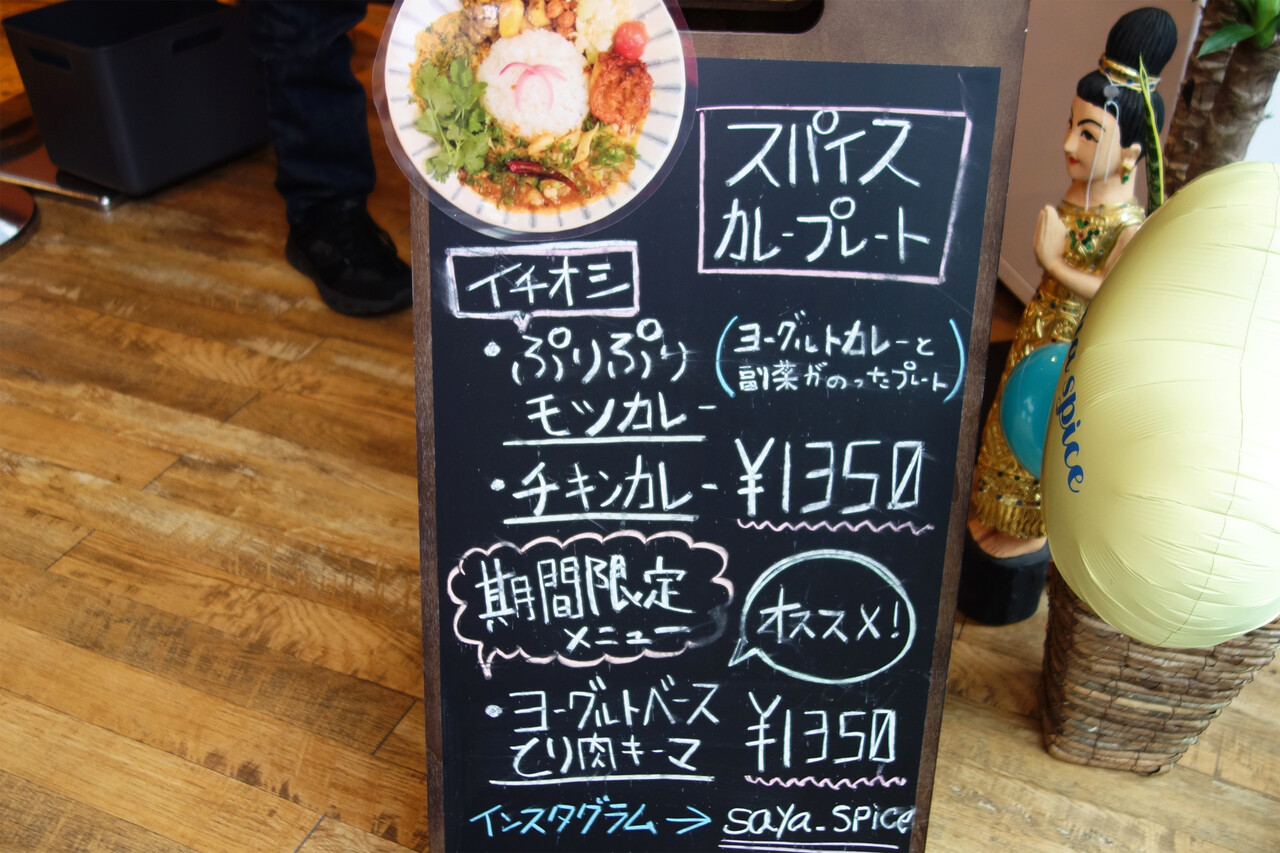 スパイス
カレープレート
イチオシ
・ぷりぷり
モツカレー
(ヨーグルトカレーと
副菜がのったプレート)
・チキンカレー
¥1350
期間限定
メニュー
オススメ!
・ヨーグルトベース
とり肉キーマ
¥1350
インスタグラム→ saya_spice
spice